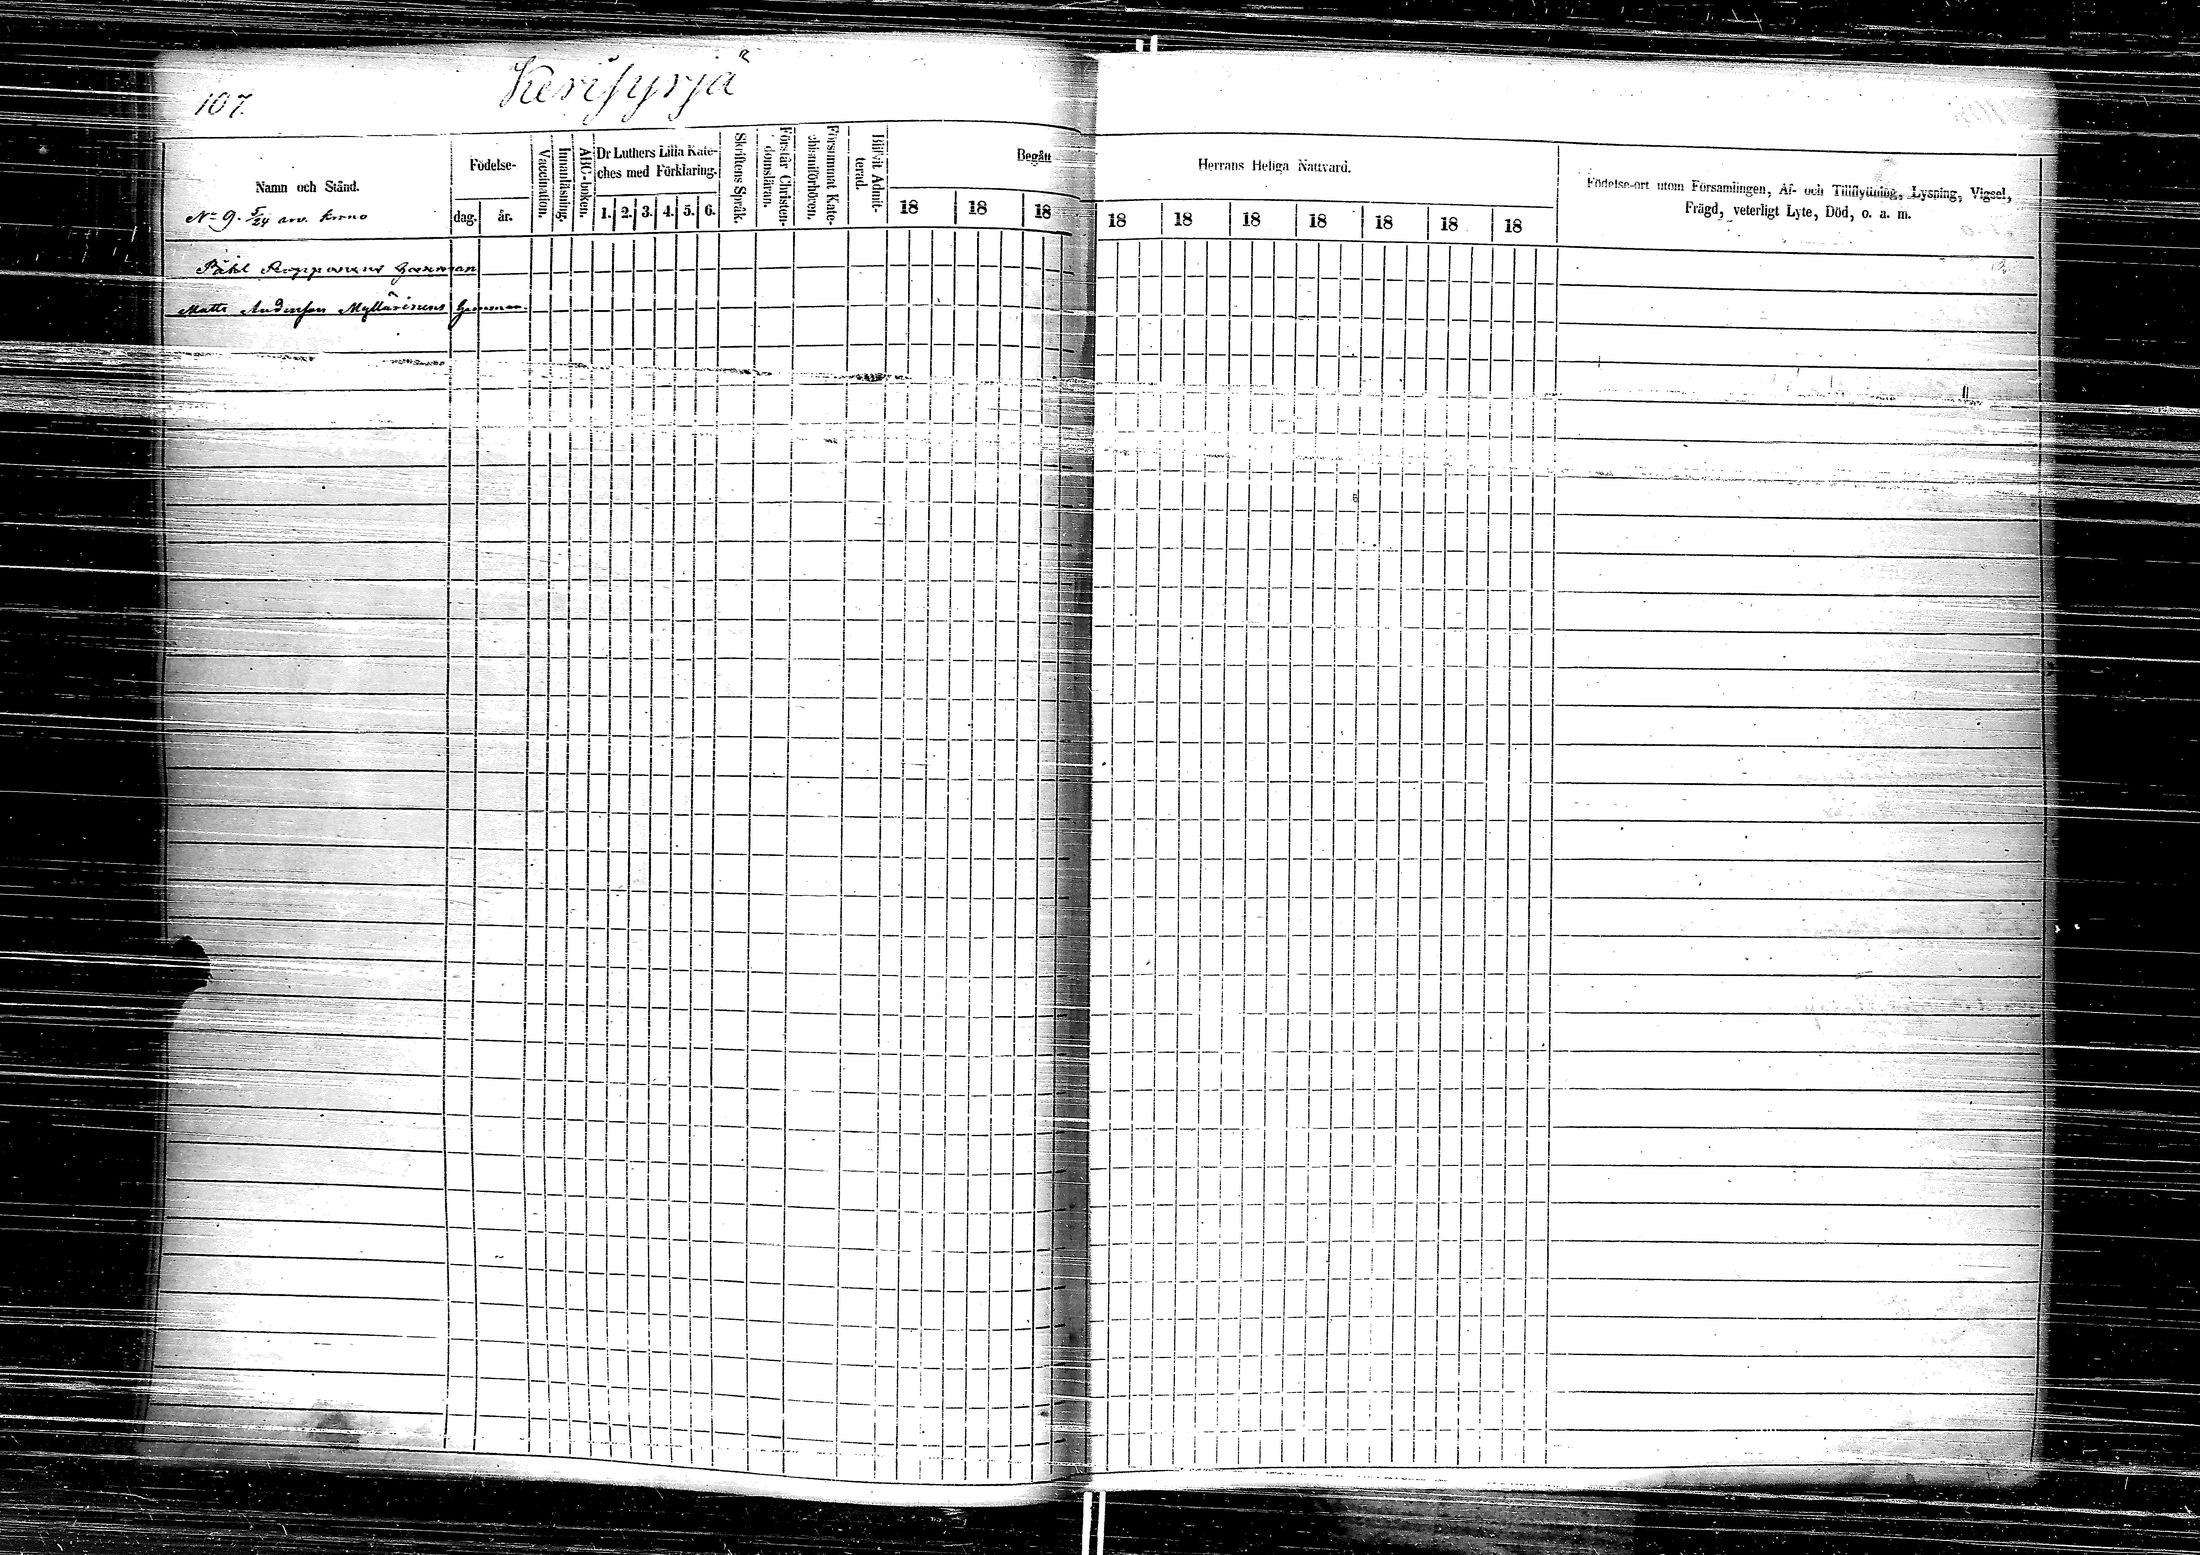 107.
Kerisyrjä
Namn och Stånd.
No 9. 5/24 arv. krono
Födelse-
dag. år.
Vaccination.
Innanläsning.
ABC-boken.
Dr Luthers Lilla Kate-
ches med Förklaring.
1. 2. 3. 4. 5. 6.
Skriftens Språk.
Förstår Christen-
domsläran.
Försummat Kate-
chismiförhören.
Blifvit Admit-
terad.
Begått
18 18 18
Herrans Heliga Nattvard.
18 18 18 18 18 18 18
Födelse-ort utom Församlingen, Af- och Tillflyttning, Lysning, Vigsel,
Frägd, veterligt Lyte, Död, o. a. m.
Påhl
Matts Andersson Myllärinens